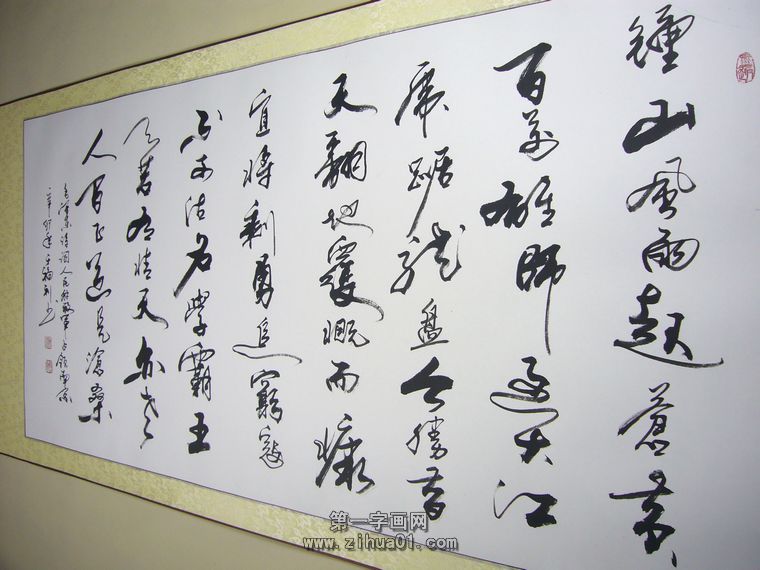 鍾山風雨起蒼黄
百萬雄師過大江
虎踞龙盘今勝昔
天翻地覆慨而慷
宜將剩勇追窮寇
不可沽名學霸王
天若有情天亦老
人间正道是滄桑
毛泽東詩詞人民解放軍占領南京
辛卯年王福利书
第一字画网
www.zihua01.com